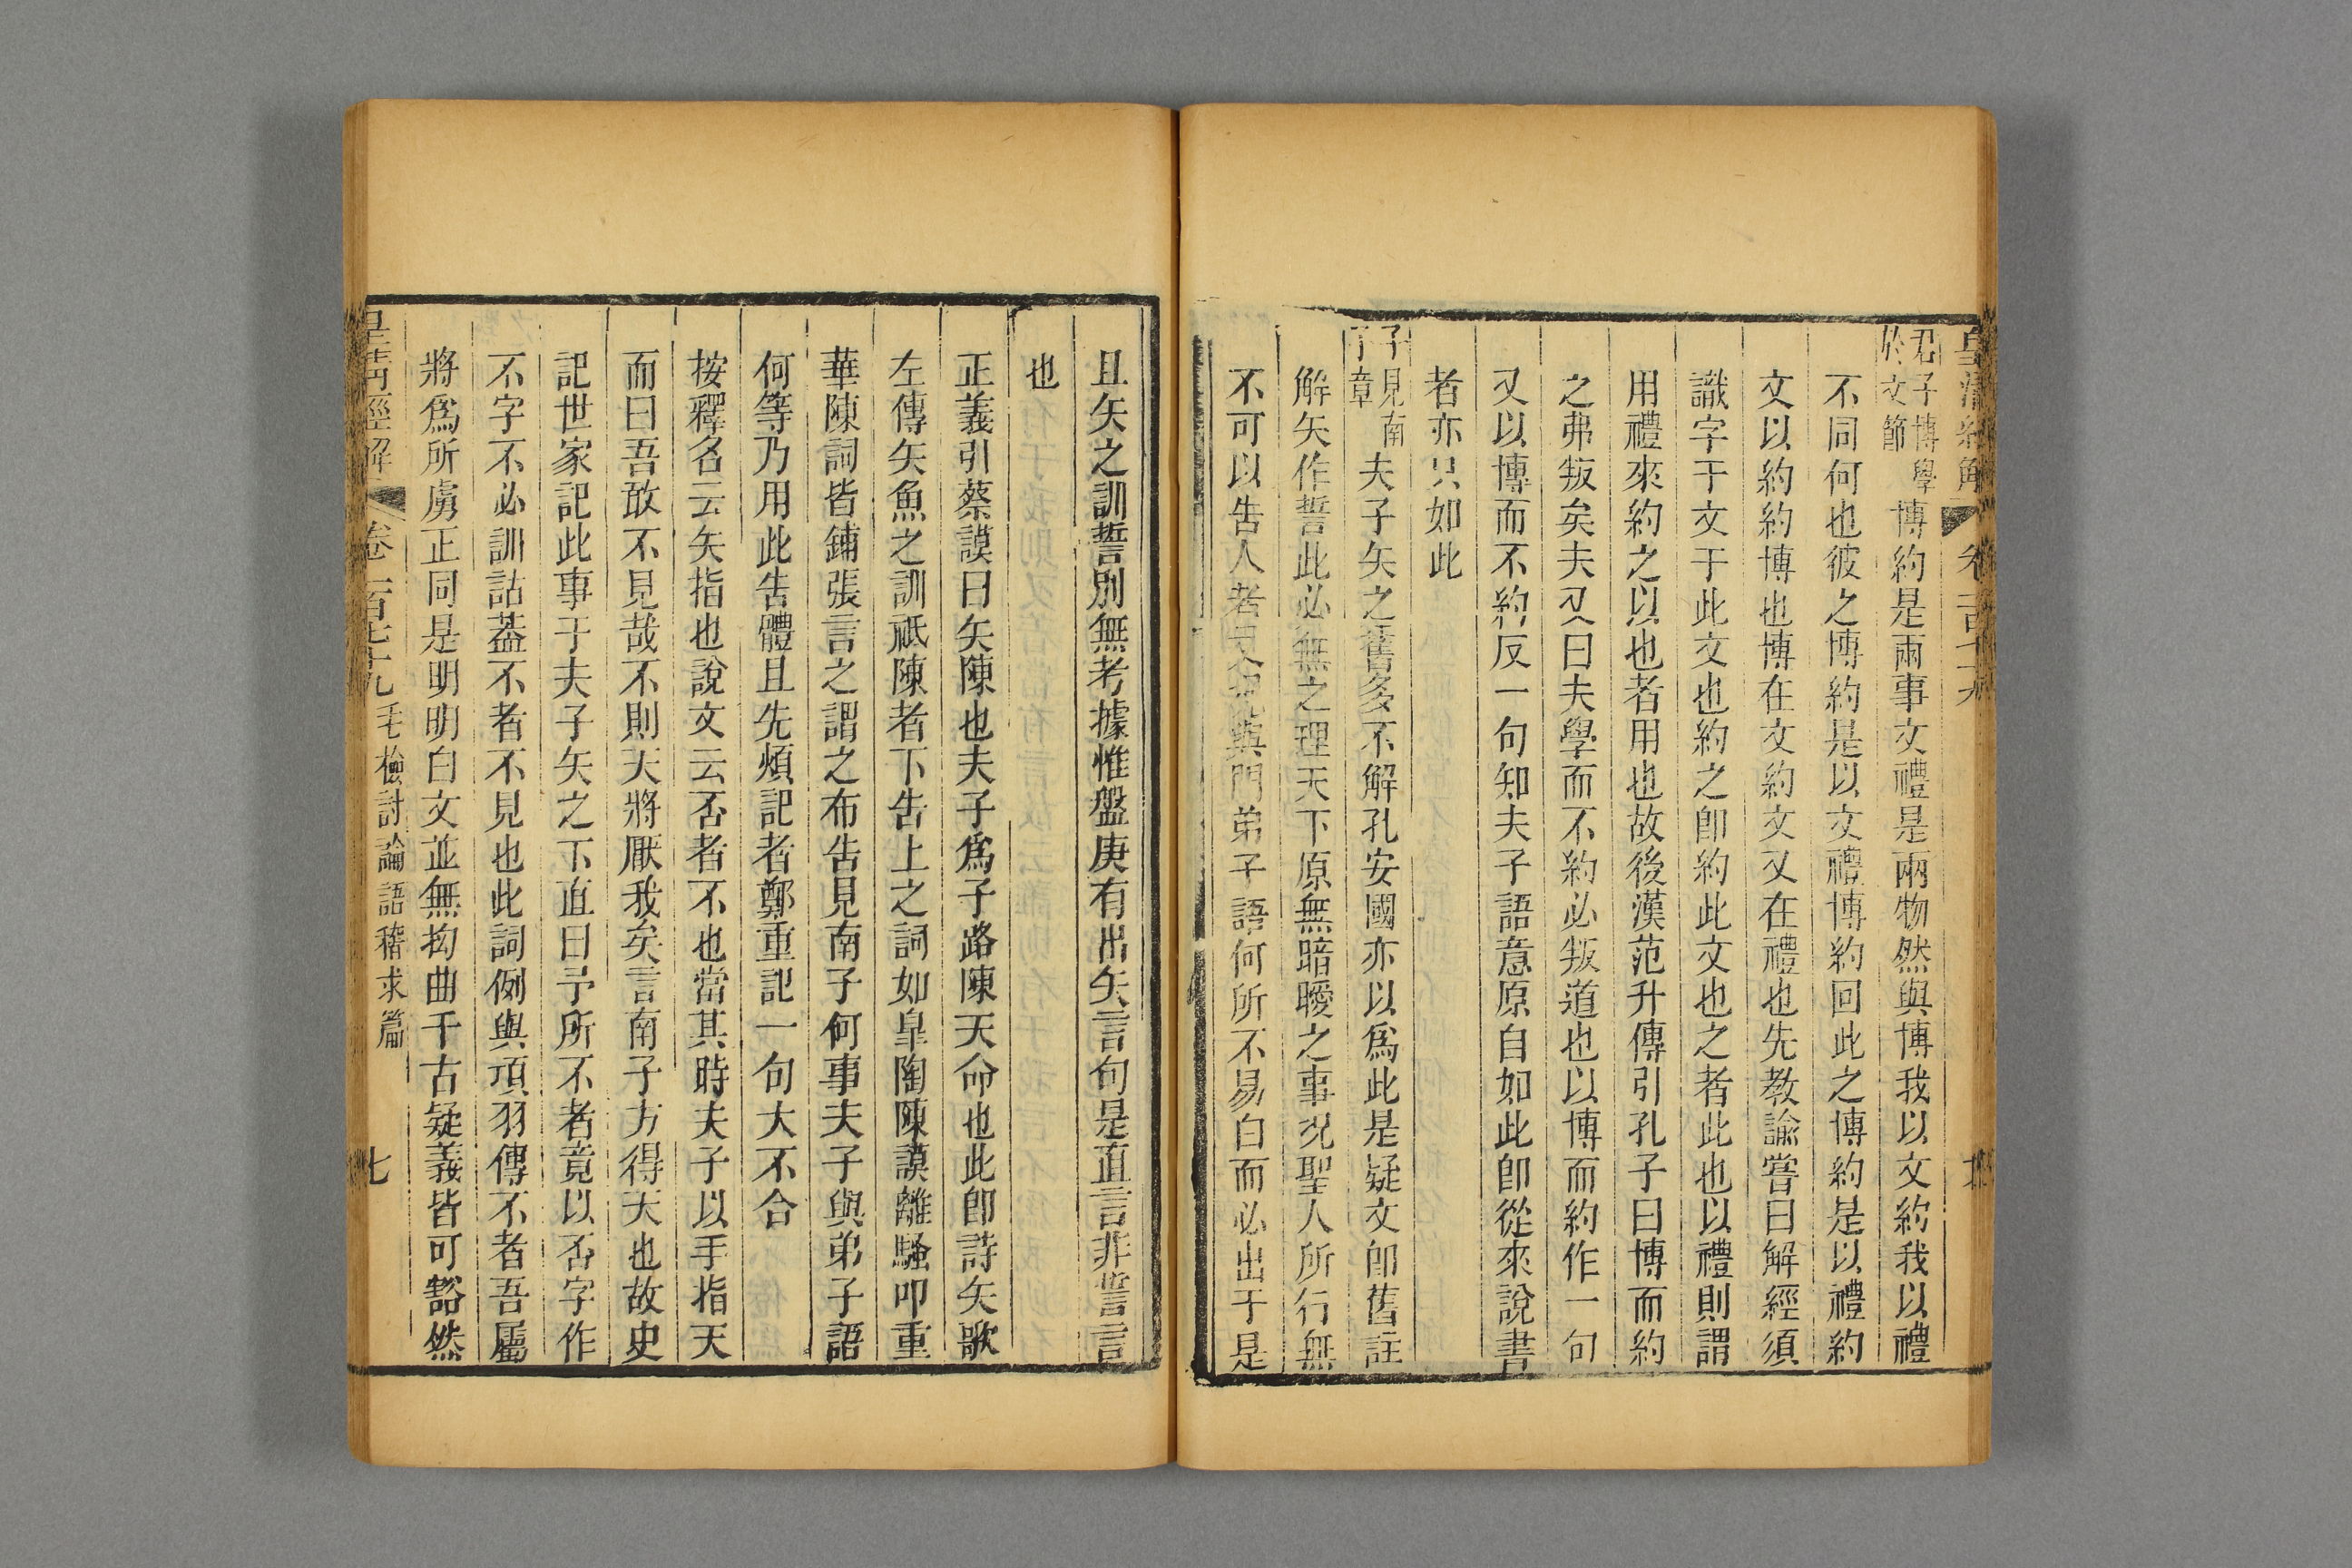 皇清經解
卷一百七十九
君子博學
於文節
博約是兩事文禮是兩物然與博我以文約我以禮
不同何也彼之博約是以文禮博約回此之博約是以禮約
文以約約博也博在文約文又在禮也先教諭嘗曰解經須
識字于文于此文也約之卽約此文也之者此也以禮則謂
用禮來約之以也者用也故後漢范升傳引孔子曰博而約
之弗叛矣夫又曰夫學而不約必叛道也以博而約作一句
又以博而不約反一句知夫子語意原自如此卽從來說書
者亦只如此
子見南
子章
夫子矢之舊多不解孔安國亦以爲此是疑文卽舊註
解矢作誓此必無之理天下原無暗曖之事况聖人所行無
不可以告人者又與門弟子語何所不易白而必出于是
且矢之訓誓別無考據惟盤庚有出矢言句是直言非誓言
也
正義引蔡謨曰矢陳也夫子爲子路陳天命也此卽詩矢歌
左傳矢魚之訓祇陳者下告上之詞如皐陶陳謨離騷叩重
華陳詞皆鋪張言之謂之布告見南子何事夫子與弟子語
何等乃用此告體且先煩記者鄭重記一句大不合
按釋名云矢指也說文云否者不也當其時夫子以手指天
而曰吾敢不見哉不則天將厭我矣言南子方得天也故史
記世家記此事于夫子矢之下直曰予所不者竟以否字作
不字不必訓詁葢不者不見也此詞例與項羽傳不者吾屬
將爲所虜正同是明明白文並無拘曲千古疑義皆可豁然
皇清經解
卷一百七十九
毛檢討論語稽求篇
七